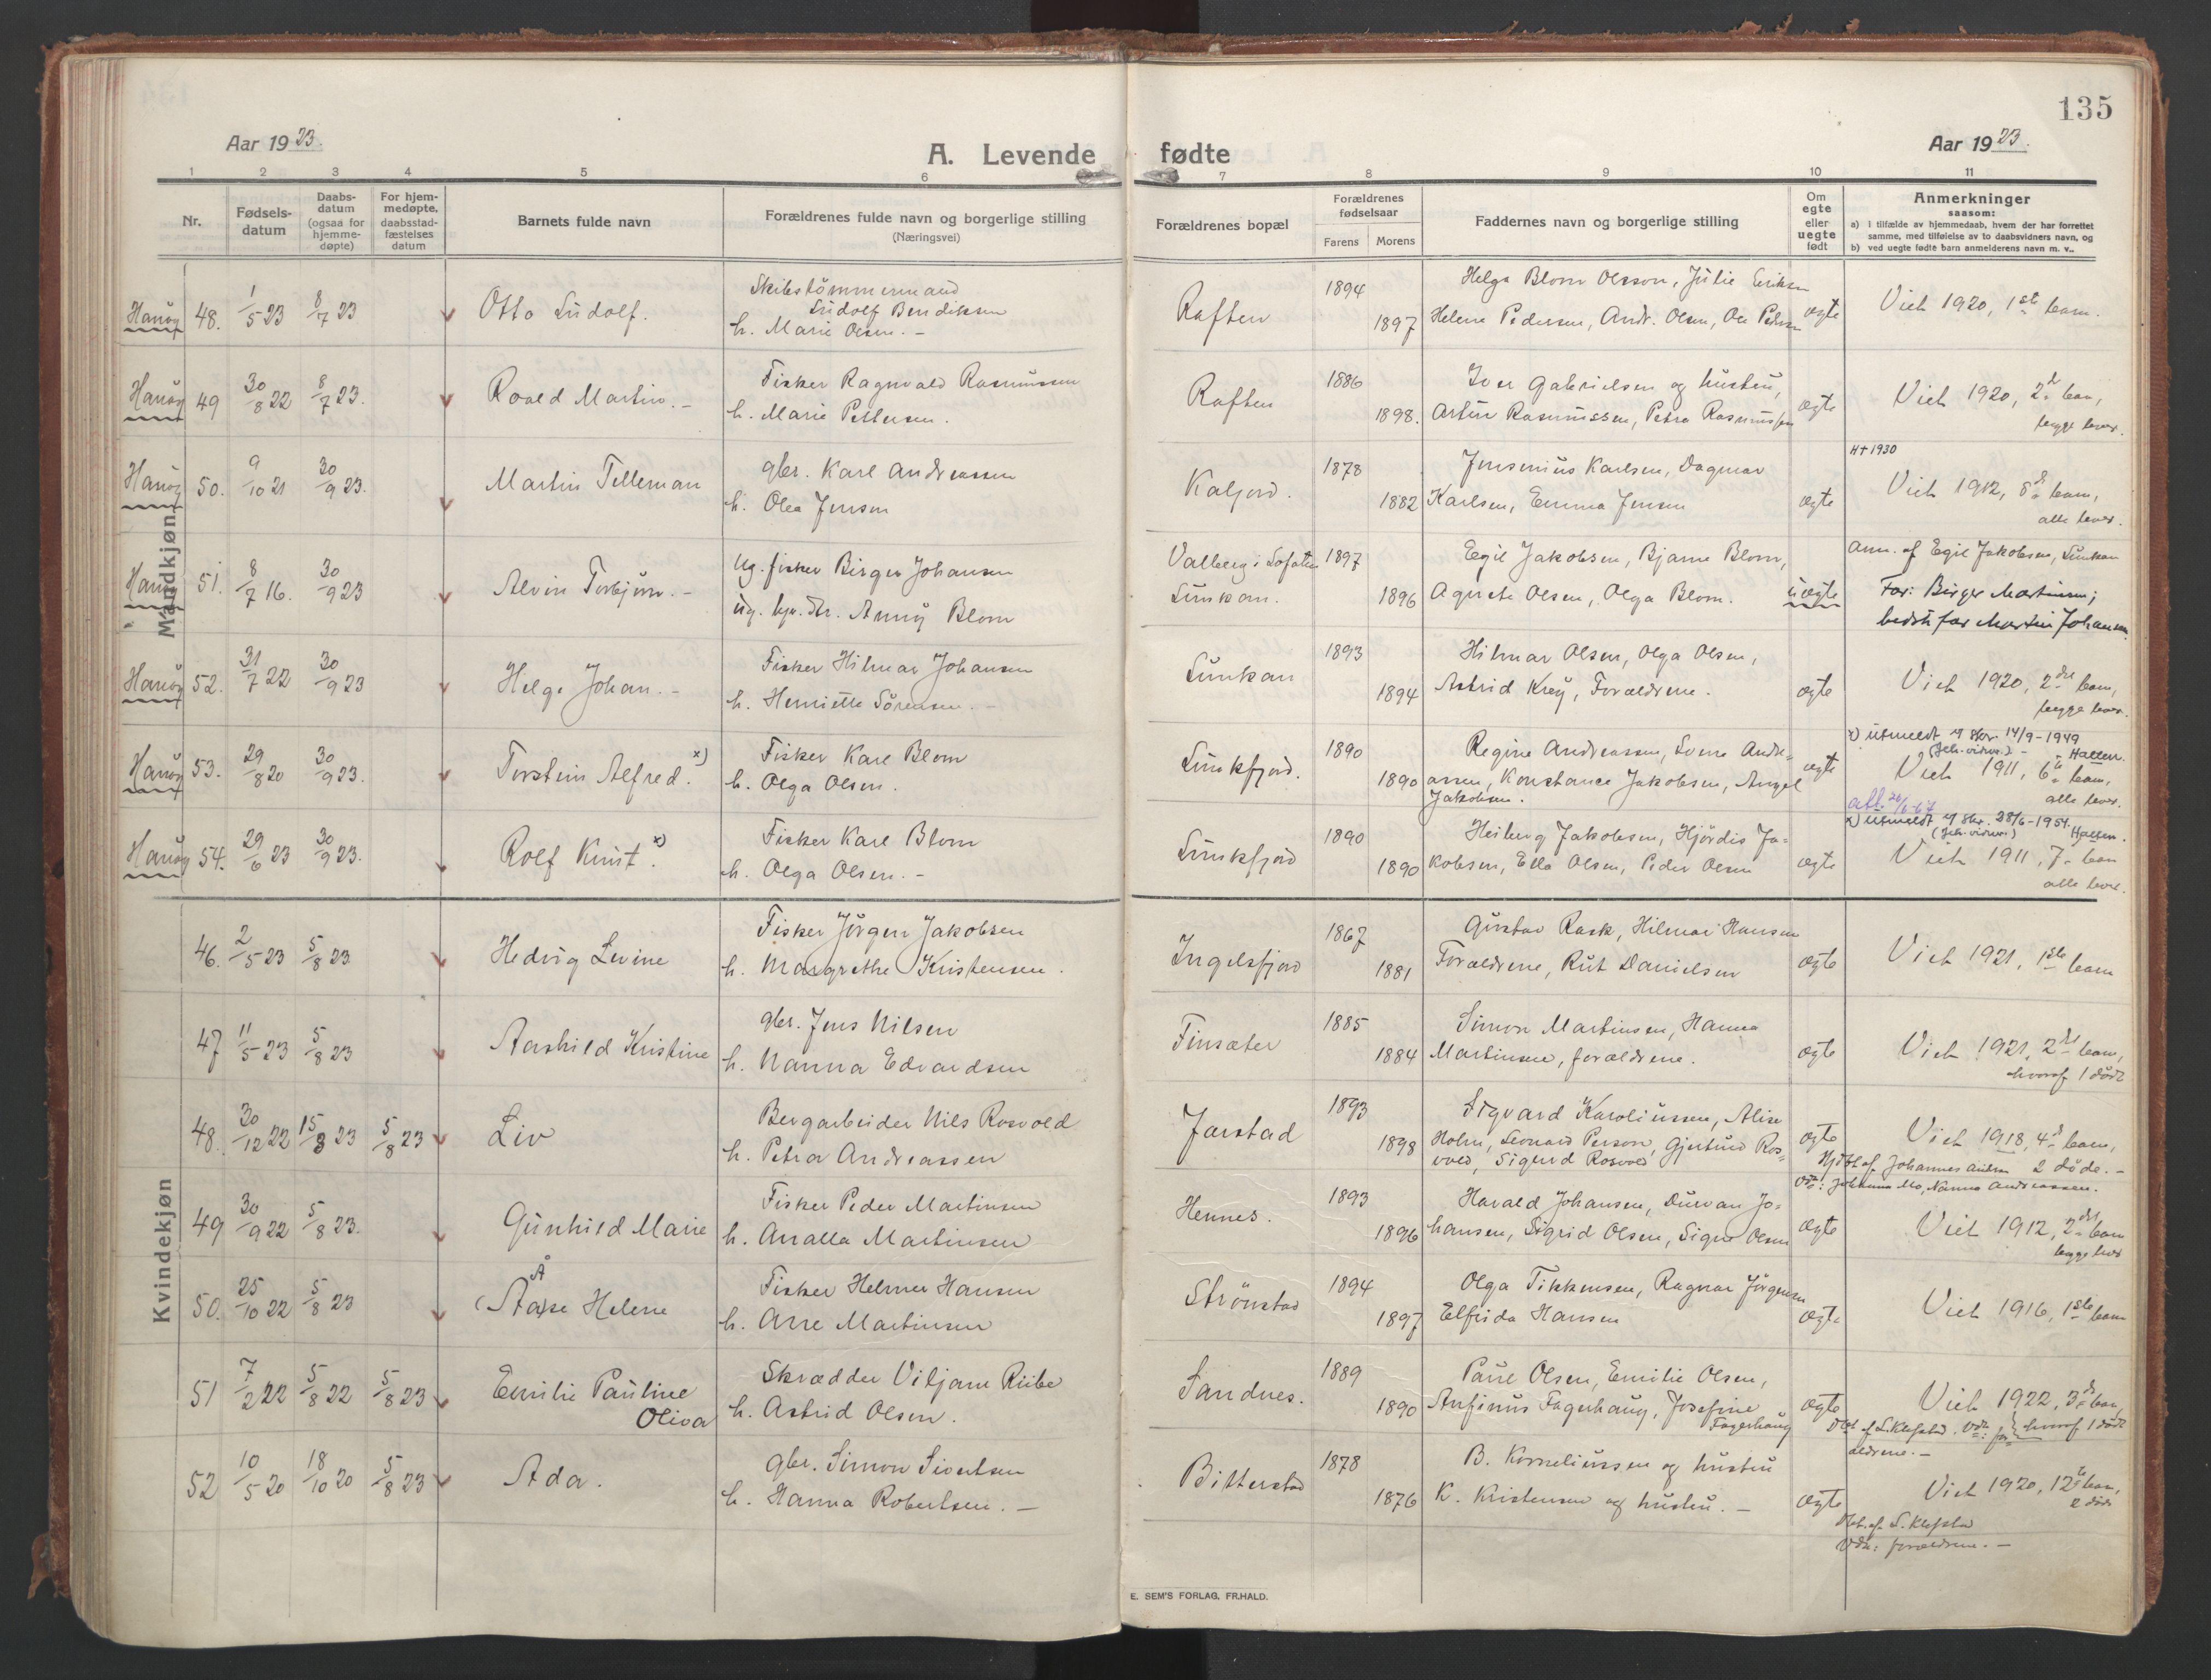 135
Aar 1923.
A. Levende fødte
Aar 1923.
1 2 3 4 5 6 7 8 9 10 11
Nr.
Fødsels-datum
Daabs-datum (ogsaa for hjemme-døpte)
For hjem-medøpte, daabsstad-fæstelses datum
Barnets fulde navn
Forældrenes fulde navn og borgerlige stilling
(Næringsvei)
Forældrenes bopæl
Forældrenes fødselsaar
Farens Morens
Faddernes navn og borgerlige stilling
Om egte eller uegte født
Anmerkninger
saasom:
a) I tilfælde av hjemmedaab, hvem der har forrettet
samme, med tilføielse av to daabsvidners navn, og
b) ved uegte fødte barn anmelderens navn m. v..
Mandkjøn
Hanøy 48. 1/5 23 8/7 23 Otto Ludolf.
Skibstømmermand
Ludolf Bendiksen
h. Marie Olsen. -
Raften 1894 1897
Helga Blom Olsson, Julie Eriksen
Helene Pedersen, Andr. Olsen, Ole Pedersen
egte
Viet 1920, 1ste barn.
Hanøy 49 30/8 22 8/7 23. Roald Martin. -
Fisker Ragnvald Rasmussen
h. Marie Pettersen.
Raften 1886 1898.
Iver Gabrielsen og hustru,
Artur Rasmussen, Petra Rasmussen
egte
Viet 1920, 2d barn,
begge lever.
Hanøy 50. 9/10 21 30/9 23. Martin Telleman
gbr. Karl Andreassen
h. Olea Jensen
Kaljord. 1878 1882
Jensenius Karlsen, Dagmar
Karlsen, Emma Jensen
egte
H† 1930
Viet 1912, 8d barn,
alle lever.
Hanøy 51. 8/7 16. 30/9 23 Alvin Torbjørn. -
Ug. fisker Birger Johansen
ug. Anny Blom
Valberg i Lofoten
Lunkan. 1897 1896
Egil Jakobsen, Bjarne Blom,
Agnete Olsen, Olga Blom.
uegte
Anm. af Egil Jakobsen, Lunkan
Far: Birger Martinsen;
bedstefar Martin Johansen.
Hanøy 52. 31/7 22 30/9 23 Helge Johan. -
Fisker Hilmar Johansen
h. Henriette Sørensen. -
Lunkan 1893 1894
Hilmar Olsen, Olga Olsen,
Astrid Krey, Forældrene.
egte
Viet 1920, 2det barn,
begge lever.
Hanøy 53. 29/8 20 30/9 23. Torstein Alfred. x)
Fisker Karl Blom
h. Olga Olsen.
Lunkfjord. 1890 1890
Regine Andreassen, Sverre Andre-
assen, Konstance Jakobsen, Angel
Jakobsen.
egte
x) utmeldt 14/9-1949
(Jeh. vidne.) - Halsen.
Viet 1911, 6te barn,
alle lever.
Hanøy 54. 29/6 23 30/9 23. Rolf Knut. x)
Fisker Karl Blom
h. Olga Olsen. -
Lunkfjord 1890 1890
Heiberg Jakobsen, Hjørdis Ja-
kobsen, Ella Olsen, Peder Olsen
egte
x) utmeldt 28/6-1954.
(Jeh. vidne.) Halsen.
Viet 1911, 7. barn
alle lever.
Kvindekjøn
46. 2/5 23 5/8 23 Hedvig Levine
Fisker Jørgen Jakobsen
h. Margrethe Kristensen.
Ingelsfjord 1867 1881
Gustav Rask, Hilmar Hansen
Forældrene, Rut Danielsen
egte
Viet 1921, 1ste barn
47 11/5 23 5/8 23 Aashild Kristine
gbr. Jens Nilsen
h. Nanna Edvardsen
Finsæter 1885 1884
Simon Martinsen, Hanna
Martinsen, forældrene.
egte
Viet 1921, 2det barn,
hvoraf 1 dødt
48. 30/12 22 15/3 23 5/8 23 Liv
Bergarbeider Nils Rosvold
h. Petra Andreassen
Jarstad 1893 1898
Sigvard Karoliussen, Alise
Holm, Leonard Person, Gjertrud Ros-
vold, Sigurd Rosvold
egte
Viet 1918, 4d barn,
Hjdbt af Johannes 2 døde. -
Vdn: Johanna Mo, Nanna Andreassen.
49 30/9 22 5/8 23. Gunhild Marie
Fisker Peder Martinsen
h. Analla Martinsen
Hennes. 1893 1896
Harald Johansen, Durvan Jo-
hansen, Sigrid Olsen, Signe Olsen
egte
Viet 1912, 2det barn
begge lever
50. 25/10 22 5/8 23 (Aa)se Helene
Å
Fisker Helmer Hansen
h. Arre Martinsen
Strønstad 1894 1897
Olga Tikkensen, Ragnar Jørgensen
Elfrida Hansen
egte
Viet 1916, 1ste barn
51 7/2 22 5/8 22 5/8 23 Emilie Pauline
Oliva
Skrædder Viljam Riibe
h. Astrid Olsen.
Sandnes. 1889 1890
Paul Olsen, Emilie Olsen,
Anfinus Fagerhaug, Josefine
Fagerhaug
egte
Viet 1922, 3d barn,
Dbt af S. Klefstad. Vdn: for- hvoraf 1 dødt
ældrene. -
52 10/5 20 18/10 20 5/8 23 Ada.
gbr. Simon Sivertsen
h. Hanna Robertsen. -
Bitterstad 1878 1876
B. Korneliussen og hustru
K. Kristensen og hustru. -
egte
Viet 1920, 12te barn,
2 døde
Dbt. af S. Klefstad
Vdn: forældrene. -
E. SEM'S FORLAG, FR.HALD.